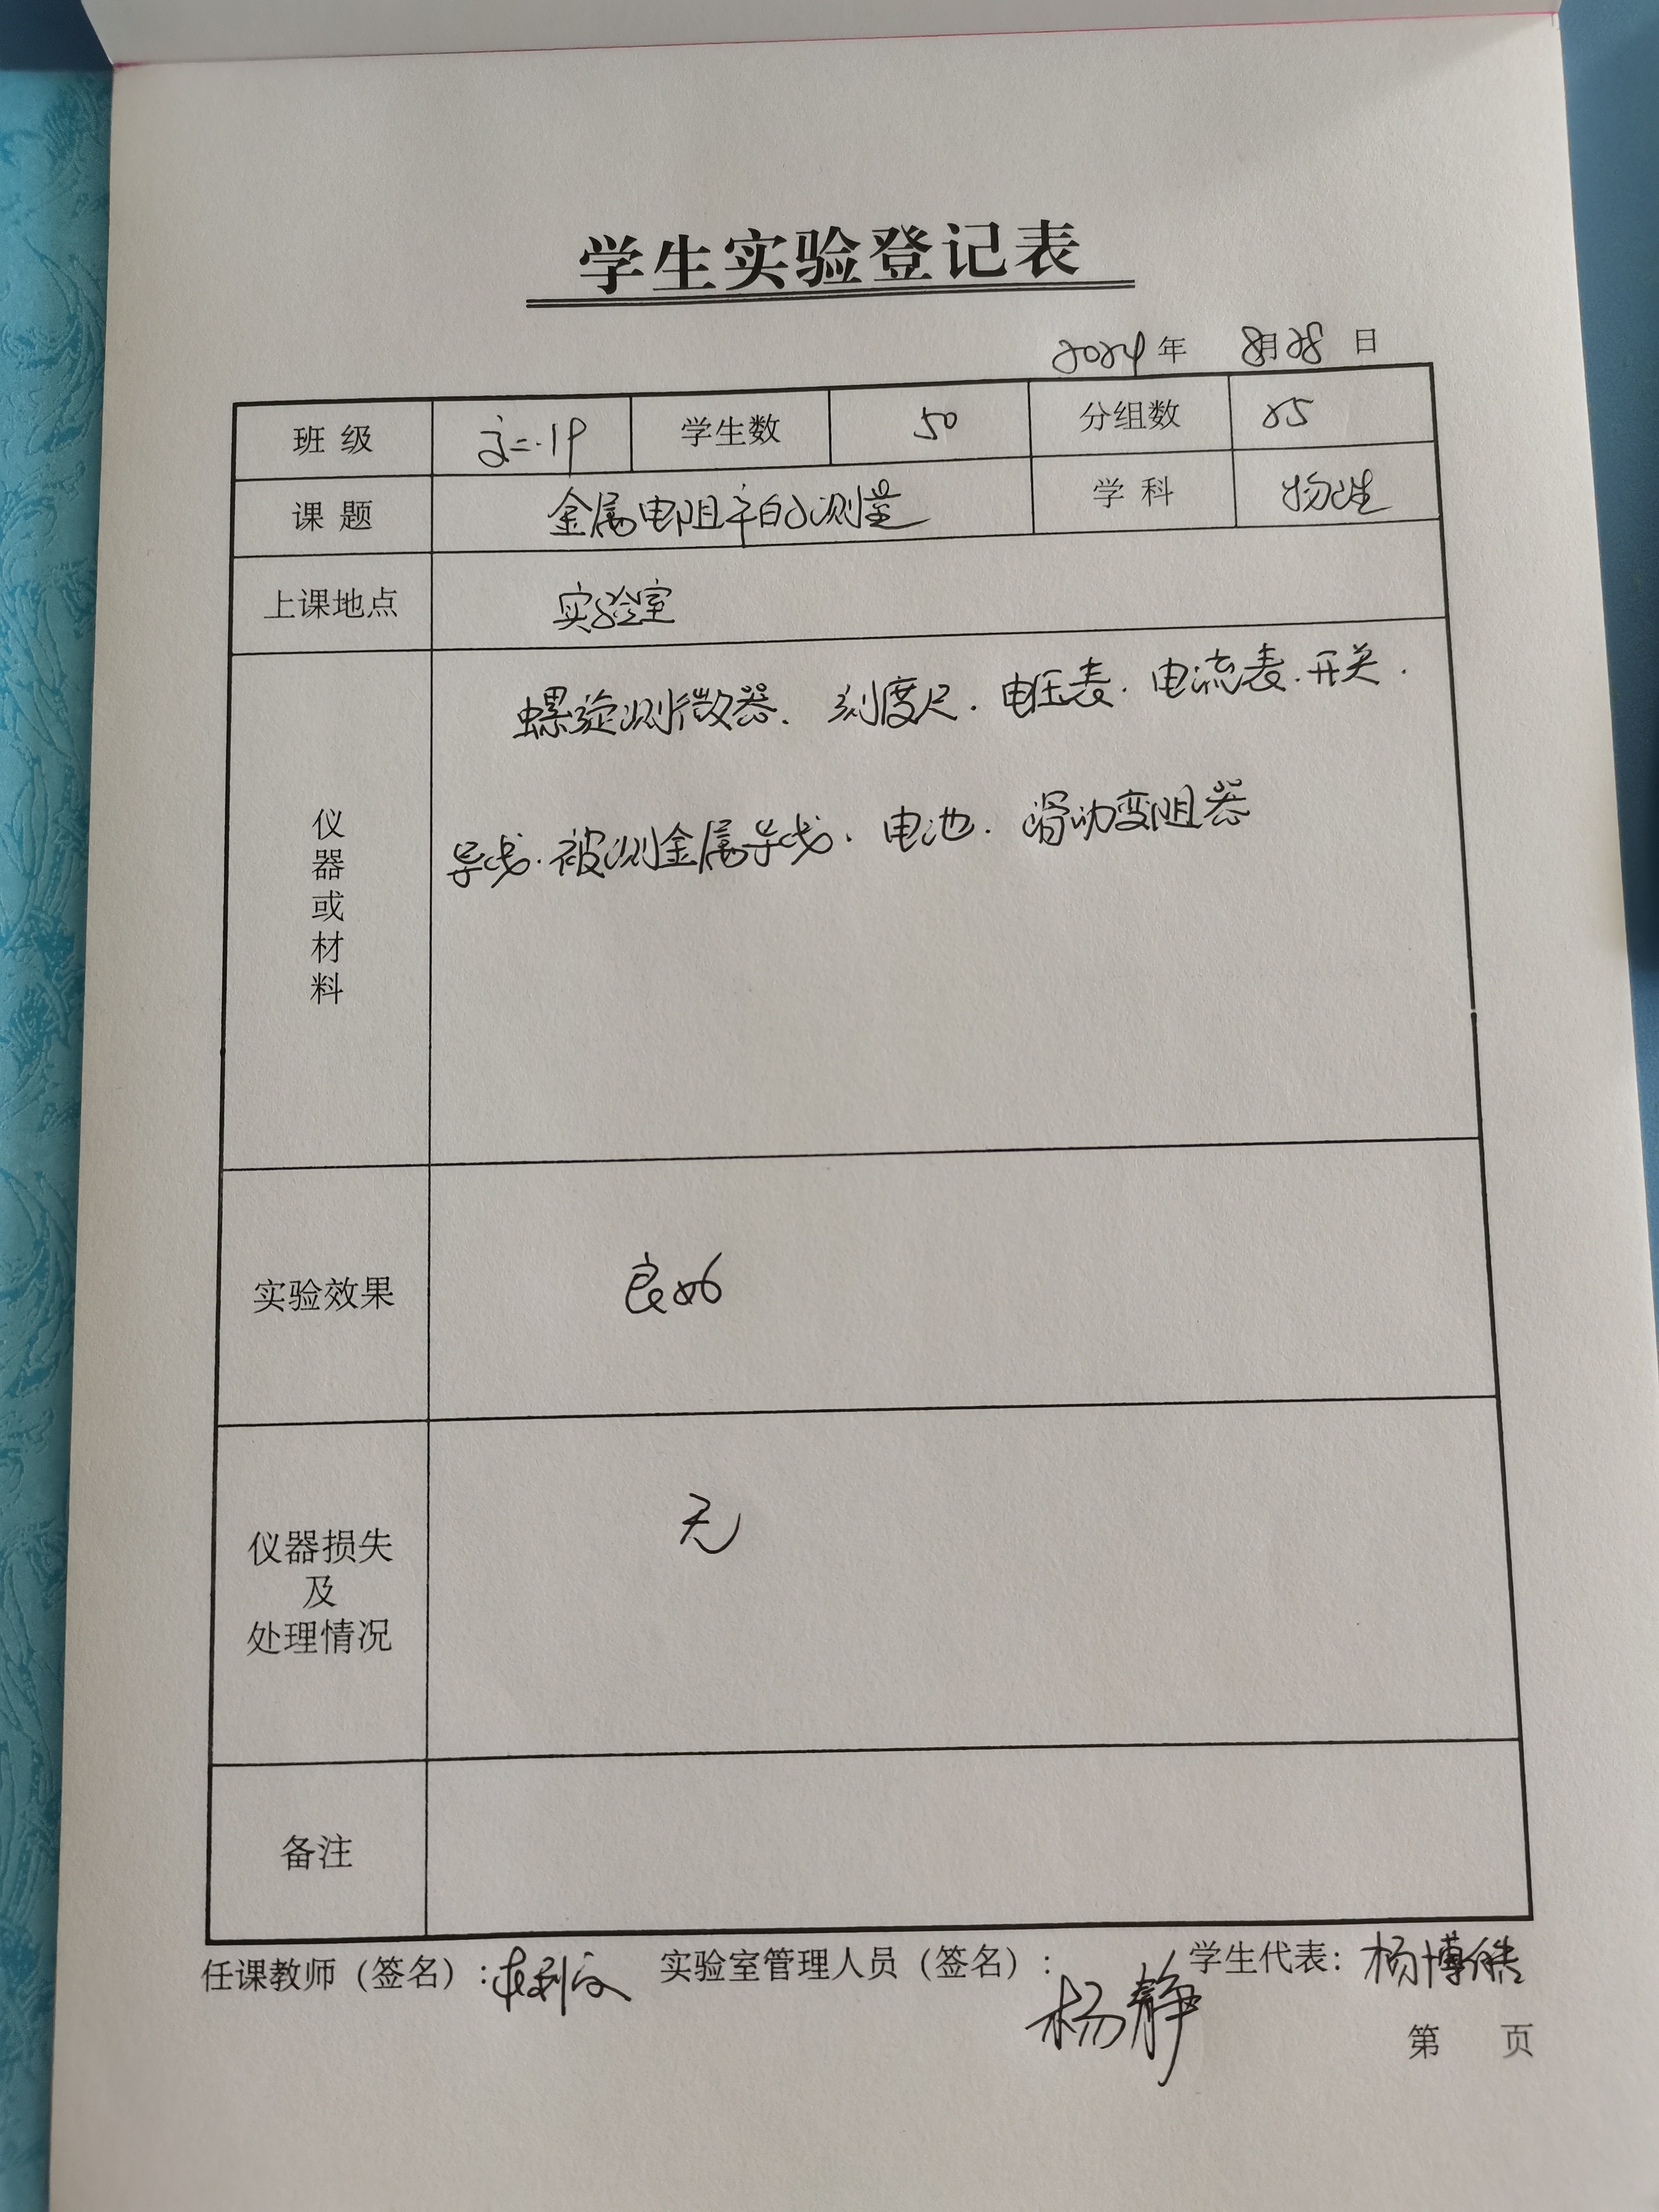 学生实验登记表
2024年 8月28日
班级 学生数 50 分组数 25
课题 金属电阻率的测量 学科 物理
上课地点 实验室
仪器或材料 螺旋测微器、刻度尺.电压表.电流表.开关.
导线.被测金属导线.电池.滑动变阻器
实验效果 良好
仪器损失
及
处理情况 无
备注
任课教师（签名）: 实验室管理人员（签名）: 杨静 学生代表: 杨博皓
第 页